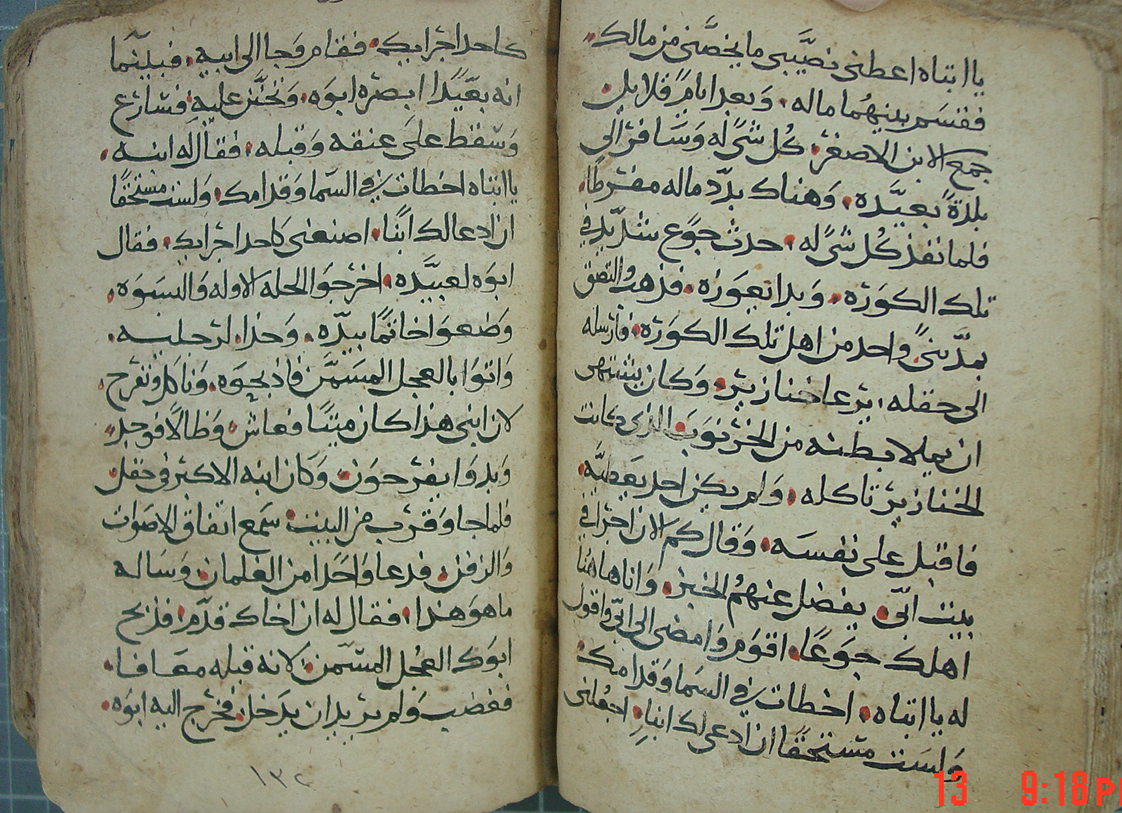 يا ابتاه اعطني نصيبي ما يخصني من مالك
فقسم بينهما ماله. وبعد ايام قلايل
جمع الابن الاصغر. كل شي له وسافر الي
بلدة بعيده. وهناك بدد ماله مفرطا.
فلما نفذ كل شي له. حدث جوع شديد في
تلك الكوره. وبدا تعوزه. فذهب والتصق
بمديني واحد من اهل تلك الكوره. فارسله
الى حقله. يرعا خنازير. وكان يشتهى
ان يملا بطنه من الخرنوب الذى كانت
الخنازير تاكله. ولم يكن احد يعطيه.
فاقبل على نفسه. وقال كم الان اجرا في
بيت ابي. يفضل عنهم الخبز. وانا هاهنا
اهلك جوعا. اقوم وامضى الى ابي واقول
له يا ابتاه. اخطات في السما وقدامك.
ولست مستحقا ان ادعى لك ابنا. اجعلنى
كاحد اجرايك. فقام وجا الى ابيه. فبينما
انه بعيدا ابصره ابوه. وتحنن عليه. فسارع
وسقط على عنقه وقبله. فقال له ابنه.
يا ابتاه اخطات في السما وقدامك. ولست مستحقا
ان ادعا لك ابنا. اصنعنى كاحد اجرايك. فقال
ابوه لعبيده. اخرجوا الحله الاوله والبسوه.
وضعوا خاتما بيده. وحذا لرجليه.
واتوا بالعجل المسمن فاذبحوه. وناكل ونفرح
لان ابنى هذا كان ميتا فعاش وظالا فوجد
وبدوا يفرحون. وكان ابنه الاكبر في حقل
فلما جا وقرب من البيت. سمع اتفاق الاصوات
والزفن. فدعا واحدا من الغلمان. وساله
ما هو هذا. فقال له ان اخاك قدم. فذبح
ابوك العجل المسمن. لانه قبله معافا.
فغضب ولم يريد ان يدخل. فخرج اليه ابوه.
١٣٢
13 9:18 PM